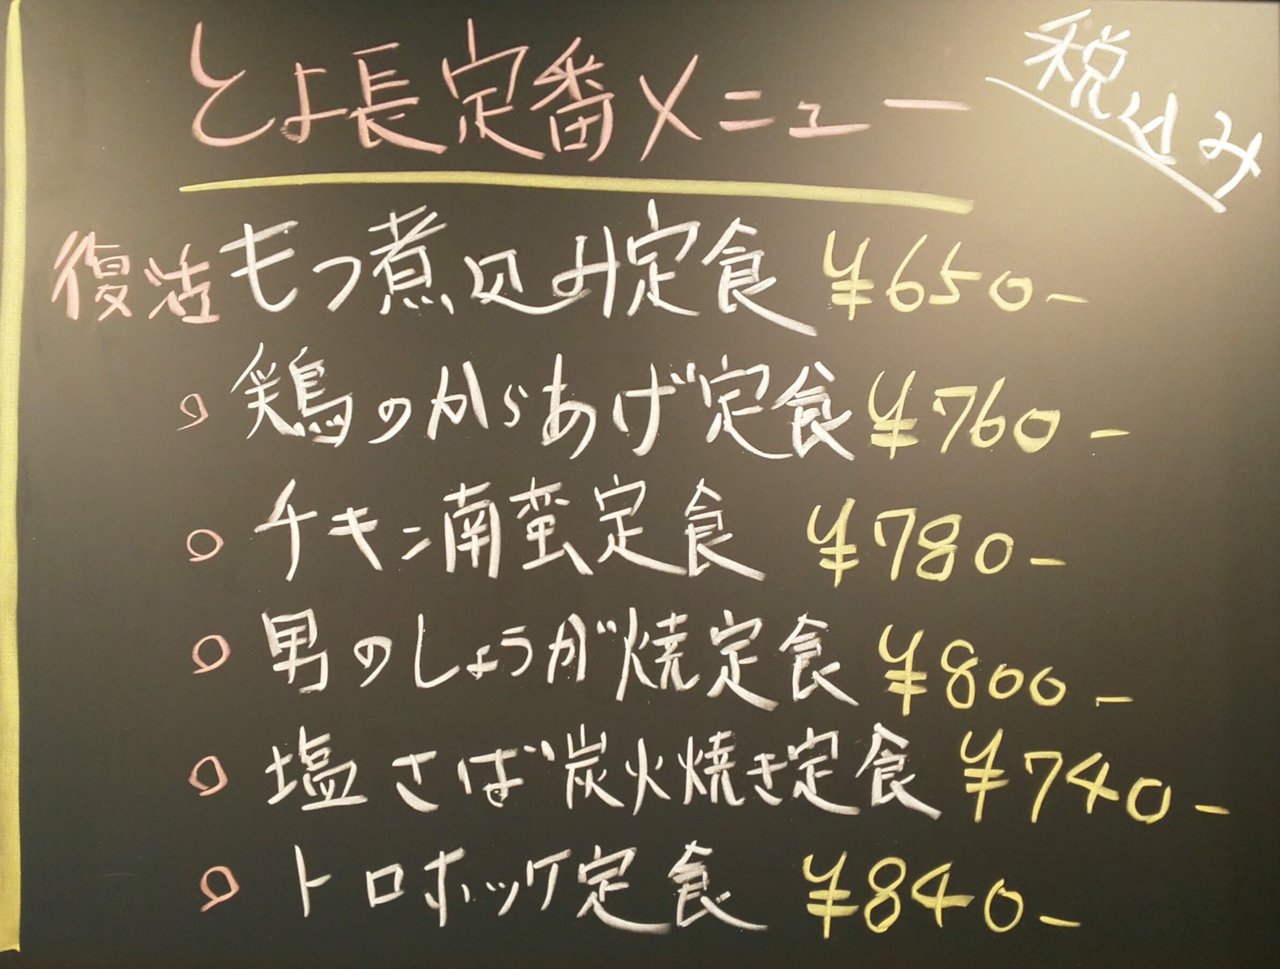 とよ長定番メニュー
税込み
復活 もつ煮込み定食 ¥650-
○ 鶏のからあげ定食 ¥760-
○ チキン南蛮定食 ¥780-
○ 男のしょうが焼定食 ¥800-
○ 塩さば炭火焼き定食 ¥740-
○ トロホッケ定食 ¥840-